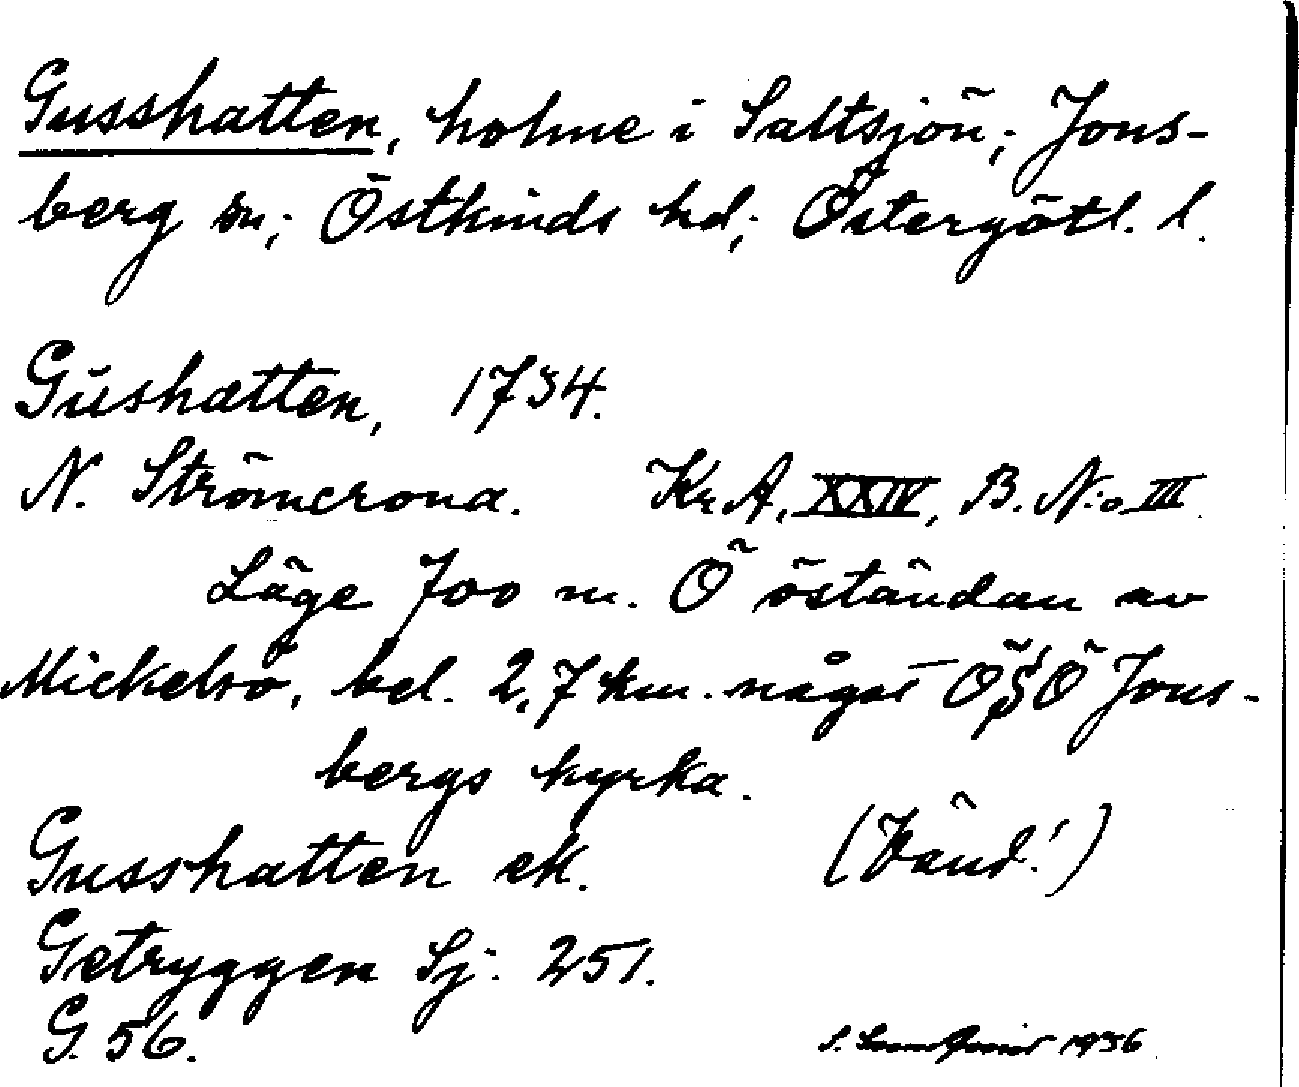 Gusshatten, holme i Saltsjön; Jons-
berg sn; Östkinds hd; Östergötl. l.
Gushatten, 1734.
N. Strömcrona. Kr.A, XXIV, B. N:o III
Läge 700 m. Ö öständan av
Mickelsö, bel. 2,7 km. något ÖSÖ Jons-
bergs kyrka.
(Vänd!)
Gusshatten ek.
Getryggen Sj. 251.
G. 56.
1936